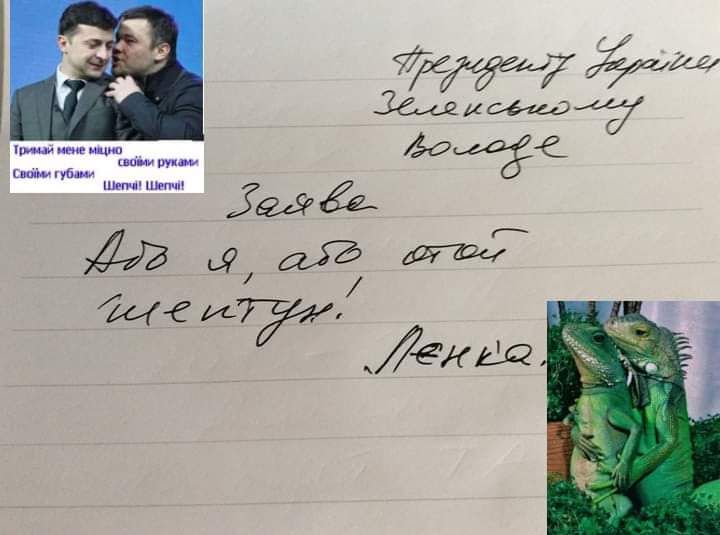 Тримай мене міцно
своїми руками
Своїми губами
Шепчі! Шепчі!
Президенту України
Зеленському
Володе
Заява
Або я, або отой
шептун!
Ленка.